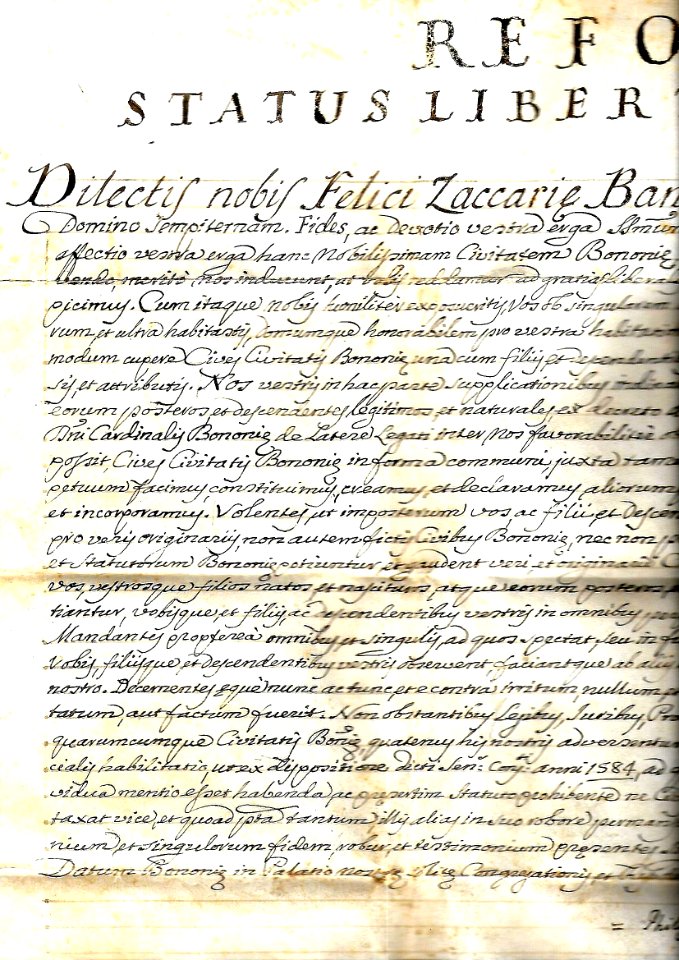 REFO
STATUS LIBERT
Dilectis nobis Felici Zaccarię Ban
Domino Sempiternam. Fides, ac devotio vestra erga SSmum
affectio vestra erga hanc Nobilissimam Civitatem Bononię
merito nos inducunt, ut vobis reddamur ad gratias libera
picimus. Cum itaque nobis humiliter exposueritis, Vos ob singularem
rum, et ultra habitastis, Domumque honorabilem pro vestra habitati
modum cupere Cives Civitatis Bononię una cum filiis, et descendent
sis, et attributis. Nos vestris in hac parte supplicationibus inclina
eorum posteros et descendentes legitimos, et naturales ex decreto
Dni Cardinalis Bononię de Latere Legati inter Nos favorabiliter
possit, Cives Civitatis Bononię in forma communi, juxta tam
petuum facimus, constituimus, creamus, et declaramus, aliorum
et incorporamus. Volentes, ut imposterum vos, ac filii, et Descen
pro veris originariis, non autem fictis Civibus Bononię, nec non
et Statutorum Bononię petiuntur et gaudent veri, et originarii C
vos, vestrosque filios natos et nascituros, atque eorum posteros
tiantur, vobisque, et filiis, ac descendentibus vestris in omnibus
Mandantes propterea omnibus, et singulis, ad quos spectat, seu in fu
vobis, filiisque et descendentibus vestris observent, faciantque ab aliis
nostro. Decernentes ęquè nunc ac tunc, et e contra irritum, nullum
tatum, aut factum fuerit. Non obstantibus Legibus, Juribus, Pro
quarumcumque Civitatis Bonę, quatenus his nostris adversentur
cialis habilitatio, ut ex dispositione dicti Sen. Cons. anni 1584, ad
vidua mentio esset habenda, ac pręsertim Statuto prohibente ne
taxat vice, et quoad pta tantum illis alias in suo robore perman
nium, et singulorum fidem, robur, et testimonium pręsentes
Datum Bononię in Palatio nostrę solitę Congregationis, et
= Phil